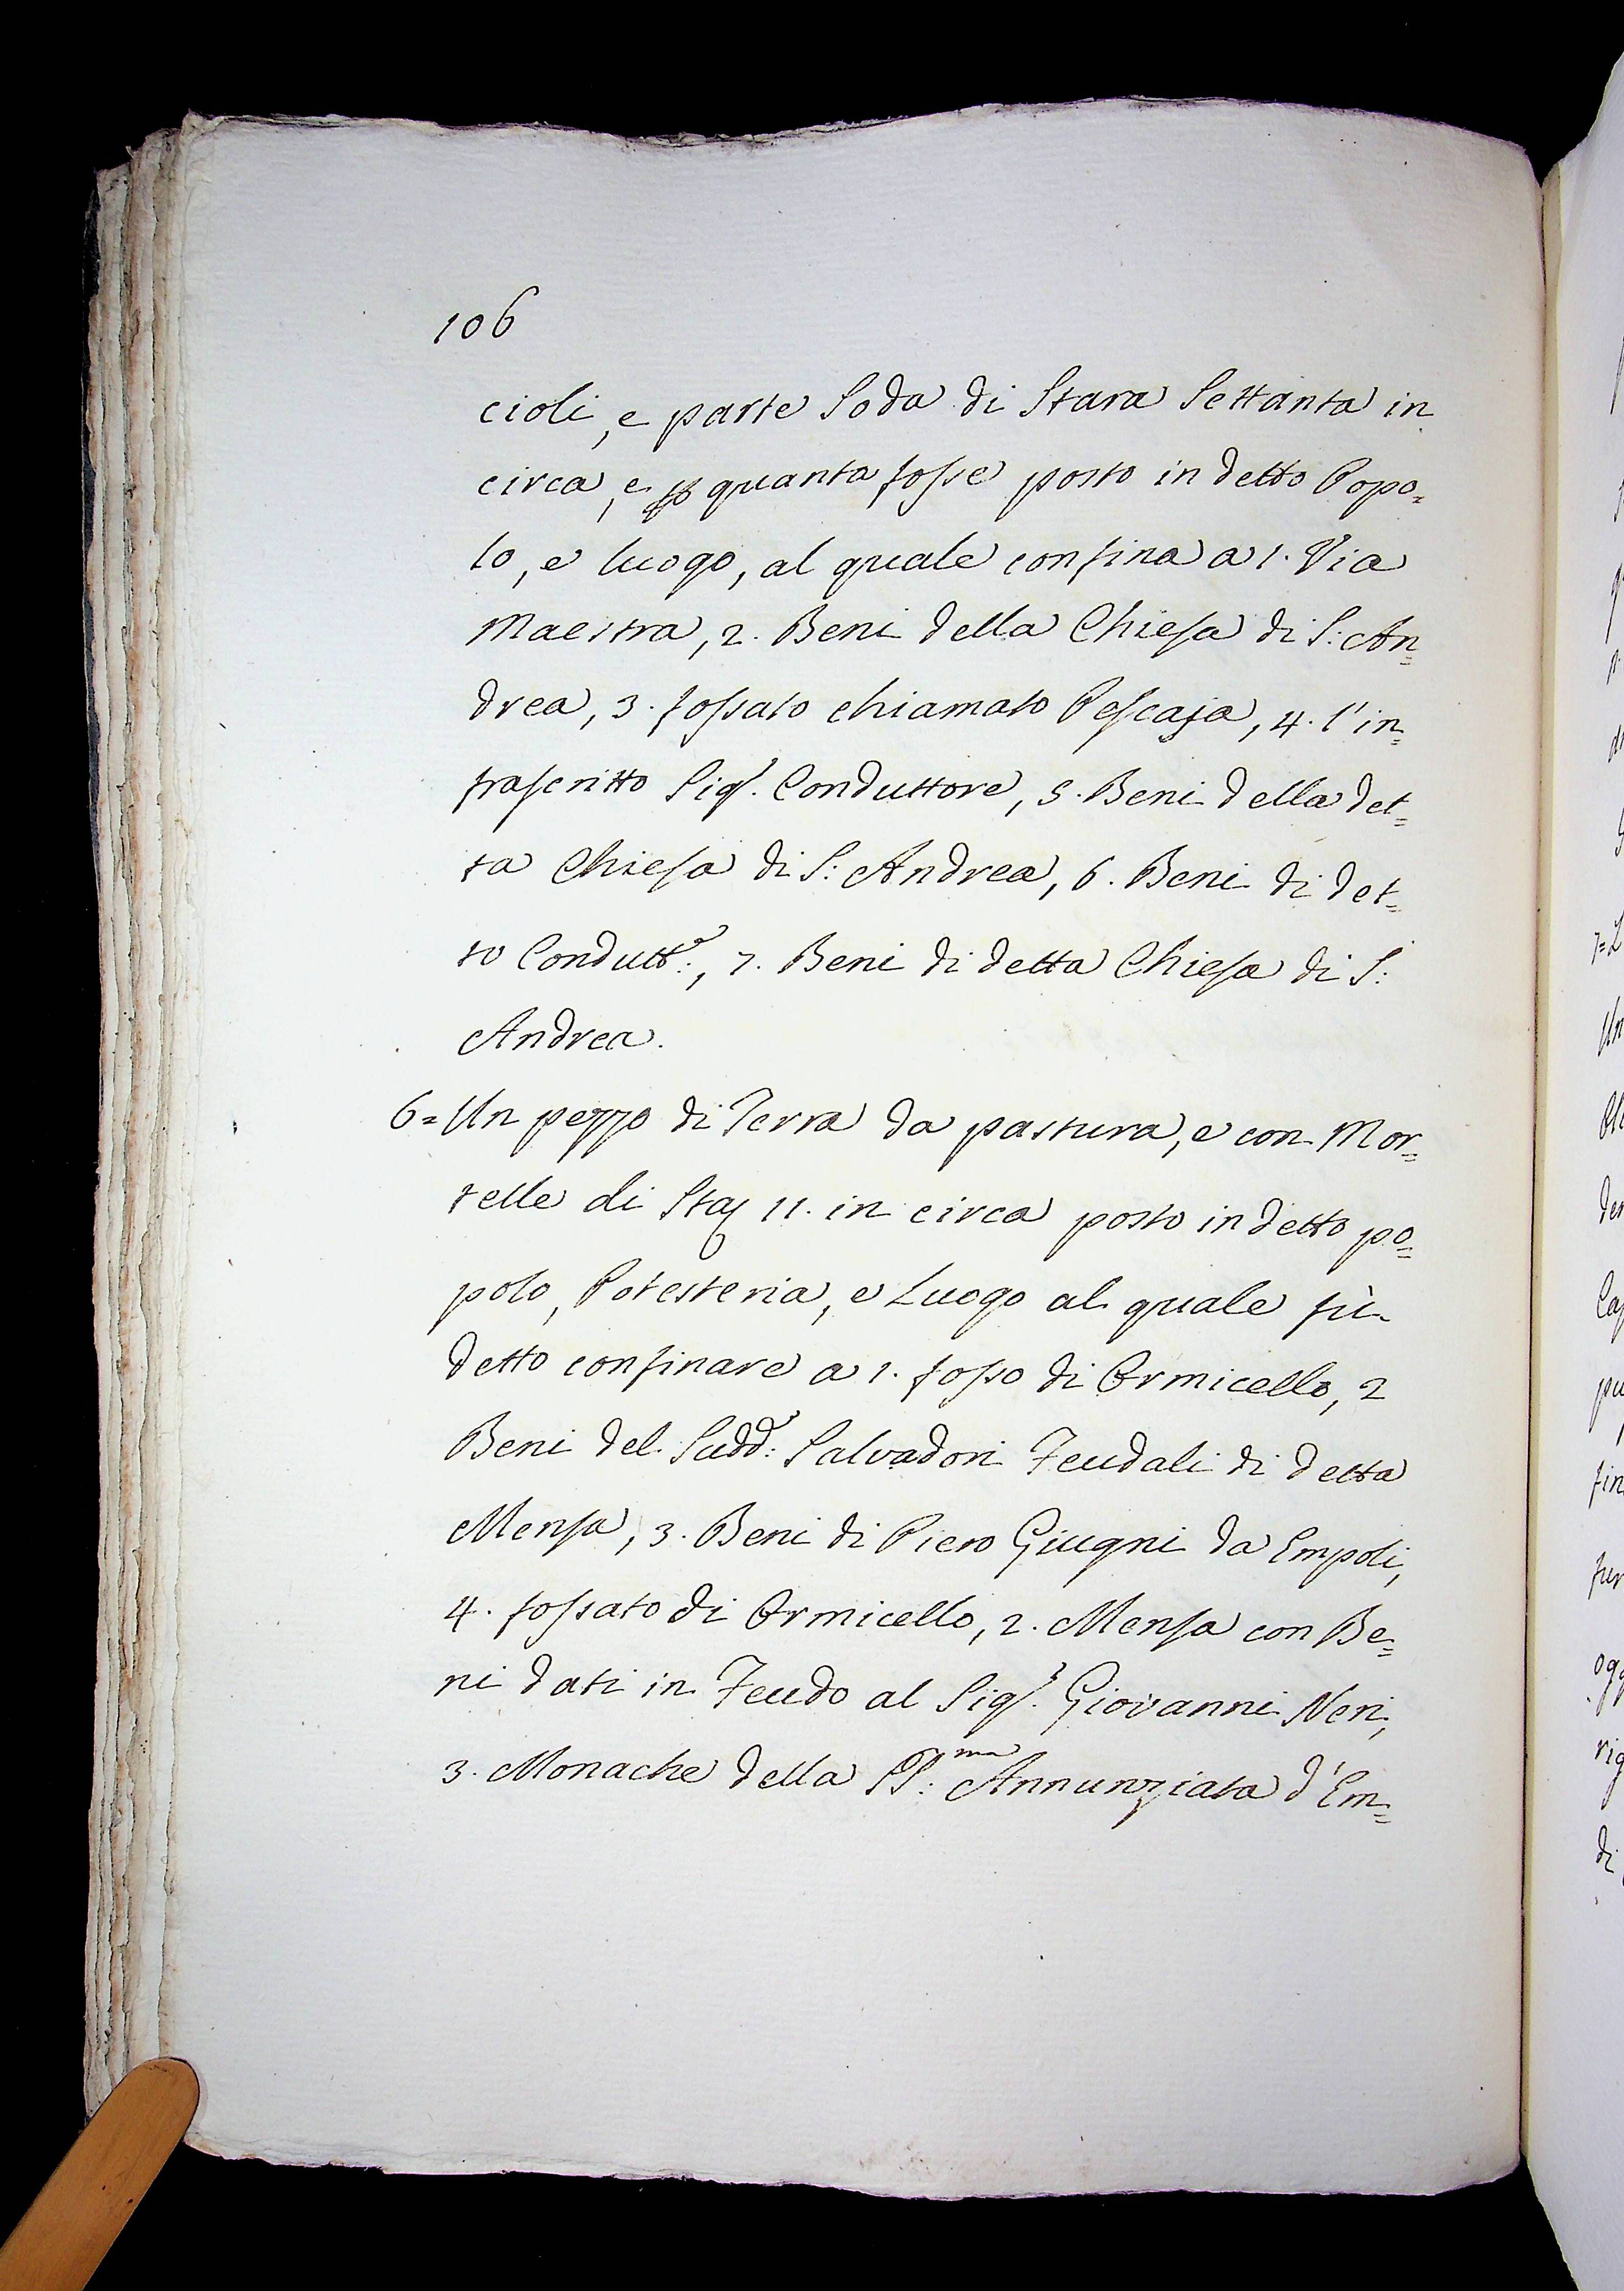 106
cioli, e parte Soda di Stara Settanta in
circa, e p quanta fosse posto in detto Popo=
lo, e luogo, al quale confina a 1. Via
Maestra, 2. Beni della Chiesa di S: An=
drea, 3. fossato chiamato Pescaja, 4. l'in=
frascritto Sig.r Conduttore, 5. Beni della det=
ta Chiesa di S: Andrea, 6. Beni di det=
to Condutt.e:, 7. Beni di detta Chiesa di S:
Andrea.
6= Un pezzo di Terra da pastura, e con Mor=
telle di Sta 11. in circa posto in detto po=
polo, Potesteria, e Luogo al quale fù
detto confinare a 1. fosso di Ormicello, 2
Beni del Sudd.o: Salvadori Feudali di detta
Mensa, 3. Beni di Piero Giugni da Empoli,
4. fossato di Ormicello, 2. Mensa con Be=
ni dati in Feudo al Sig.r Giovanni Neri,
3. Monache della SS:ma Annunziata d'Em=